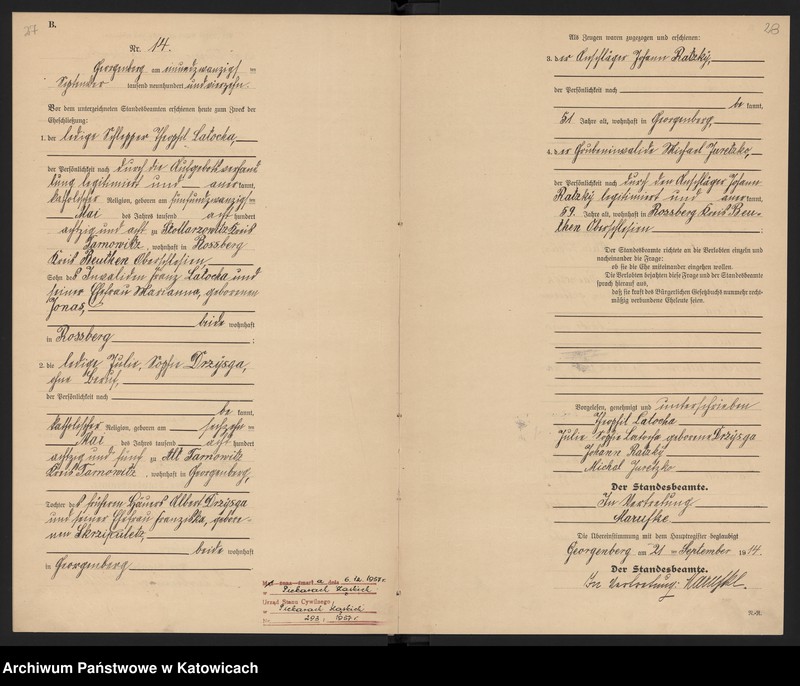 27
B.
Nr. 14.
Georgenberg am einundzwanzigsten
September tausend neunhundert und vierzehn.
Vor dem unterzeichneten Standesbeamten erschienen heute zum Zweck der
Eheschließung:
1. der ledige Schlepper Theophil Latocha,
der Persönlichkeit nach durch die Aufgebotsverhand
lung legitimiert und anerkannt,
katholischer Religion, geboren am fünfundzwanzigsten
Mai des Jahres tausend acht hundert
achtzig und acht zu Stollarzowitz Kreis
Tarnowitz, wohnhaft in Rossberg
Kreis Beuthen Oberschlesien
Sohn des Invaliden Franz Latocha und
seiner Ehefrau Marianna, geborenen
Jonas,
beide wohnhaft
in Rossberg;
2. die ledige Julie, Sophie Drzysga,
ohne Beruf,
der Persönlichkeit nach
be kannt,
katholischer Religion, geboren am sechzehnten
Mai des Jahres tausend acht hundert
achtzig und fünf zu Alt Tarnowitz
Kreis Tarnowitz, wohnhaft in Georgenberg,
Tochter des früheren Häuers Albert Drzysga
und seiner Ehefrau Franziska, gebore-
nen
beide wohnhaft
in Georgenberg
zmarł a dnia 6.12.1967r.
w Piekarach Śląskich
Urząd Stanu Cywilnego
w Piekarach Śląskich
No. 293, 1967r
28
Als Zeugen waren zugezogen und erschienen:
3. der Anschläger Johann Ratzky,
der Persönlichkeit nach
be kannt,
51 Jahre alt, wohnhaft in Georgenberg,
4. der Grubeninvalide Michael Juretzko,
der Persönlichkeit nach durch den Anschläger Johann
Ratzky legitimiert und anerkannt,
59 Jahre alt, wohnhaft in Rossberg Kreis Beu-
then Oberschlesien;
Der Standesbeamte richtete an die Verlobten einzeln und
nacheinander die Frage:
ob sie die Ehe miteinander eingehen wollen.
Die Verlobten bejahten diese Frage und der Standesbeamte
sprach hierauf aus,
daß sie kraft des Bürgerlichen Gesetzbuchs nunmehr recht-
mäßig verbundene Eheleute seien.
Vorgelesen, genehmigt und unterschrieben
Theophil Latocha
Julie Sophie Latocha geborene Drzysga
Johann Ratzky
Michal Juretzko
Der Standesbeamte.
In Vertretung
Die Übereinstimmung mit dem Hauptregister beglaubigt
Georgenberg am 21 ten September 1914.
Der Standesbeamte.
In Vertretung:
Archiwum Państwowe w Katowicach